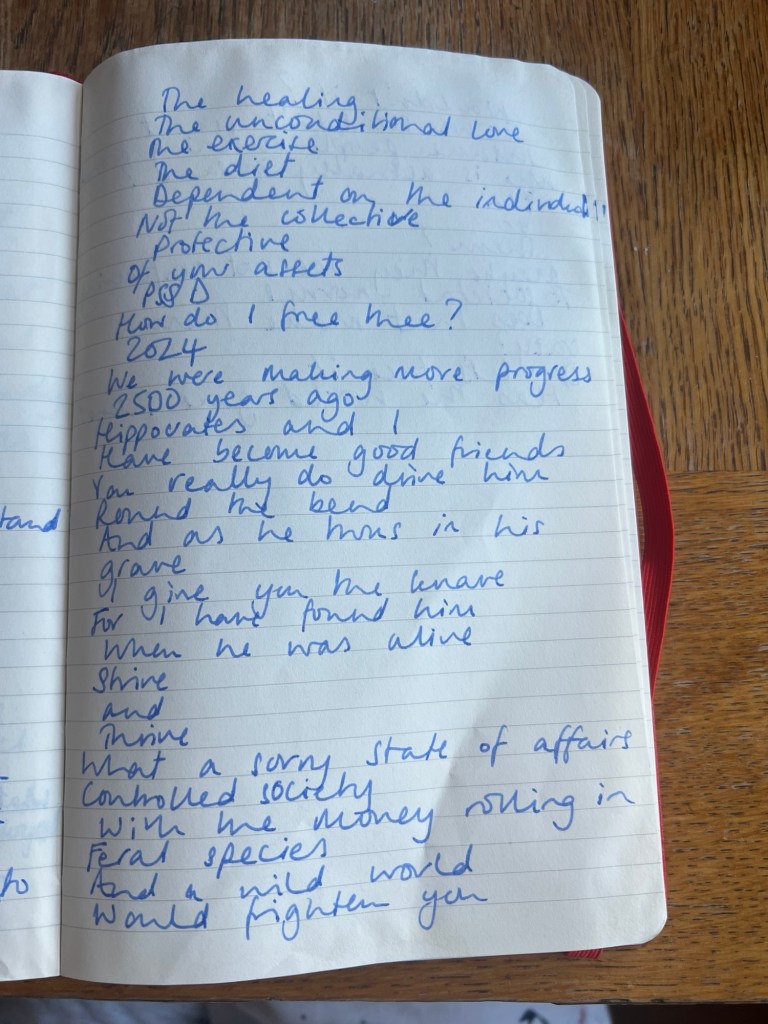 The healing
The unconditional love
The exercise
The diet
Dependent on the individual!!
Not the collective
Protective
Of your assets
PSSD
How do I free thee?
2024
We were making more progress
2500 years ago
Hippocrates and I
Have become good friends
You really do drive him
Round the bend
And as he turns in his
grave
I give you the knave
For I have found him
When he was alive
Strive
and
Thrive
What a sorry state of affairs
Controlled society
With the money rolling in
Feral species
And a wild world
Would frighten you
tand
to